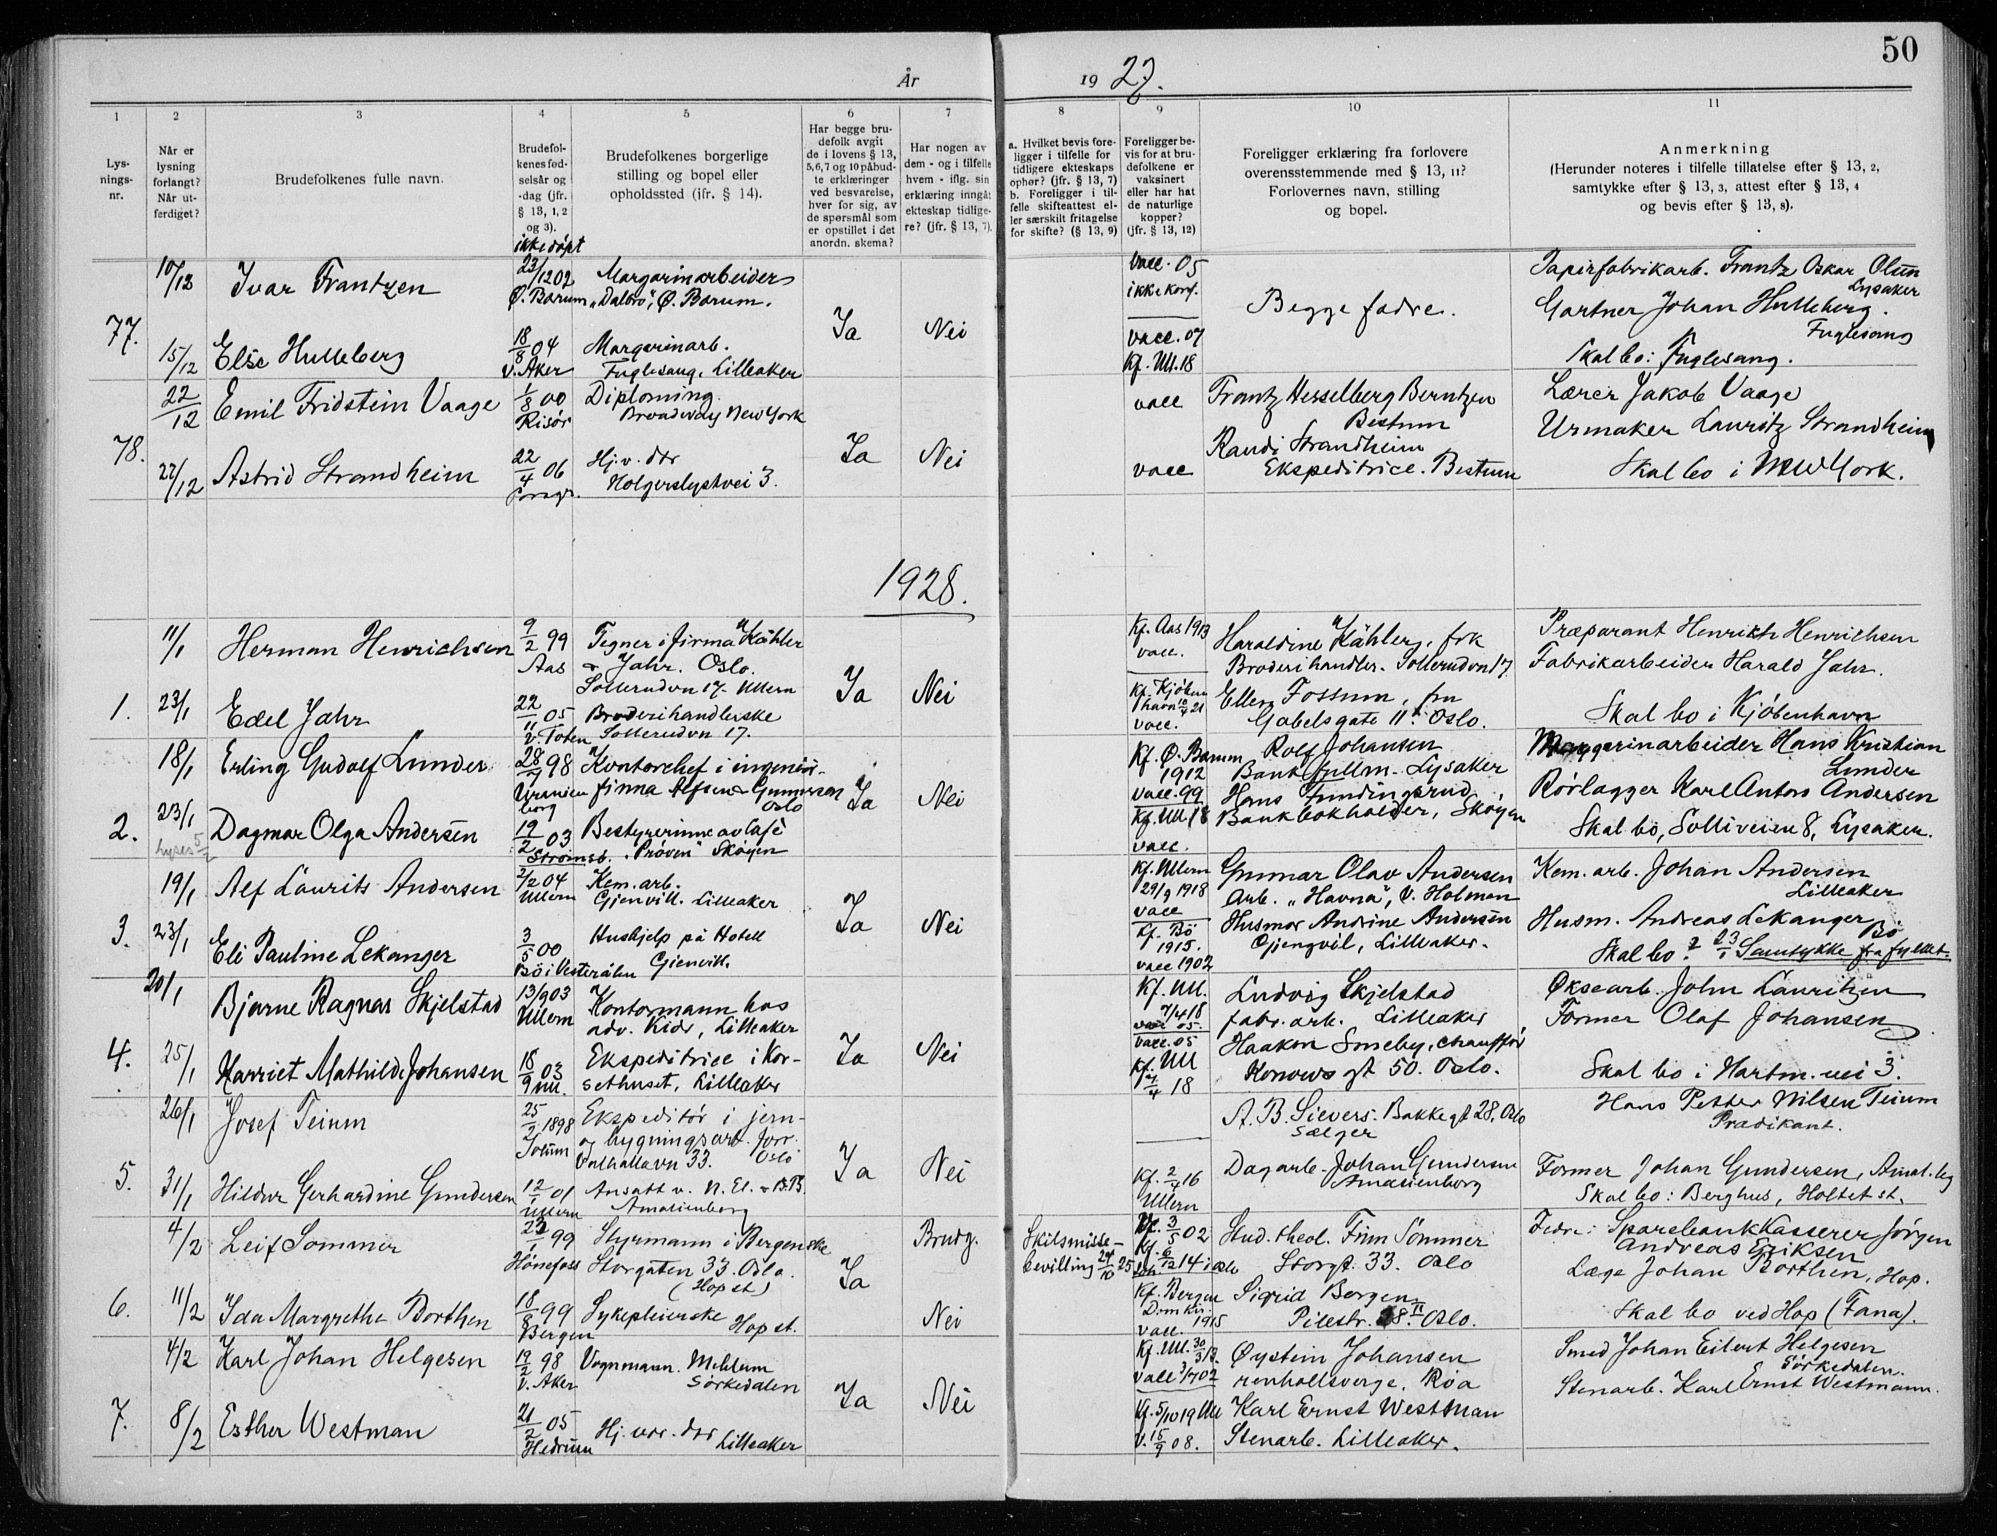 50
År 1927.
1 2 3 4 5 6 7 8 9 10 11
Lys-
nings-
nr.
Når er
lysning
forlangt?
Når ut-
ferdiget?
Brudefolkenes fulle navn.
Brudefol-
kenes fød-
selsår og
-dag (jfr.
§ 13, 1, 2
og 3).
Brudefolkenes borgerlige
stilling og bopel eller
opholdssted (jfr. § 14).
Har begge bru-
defolk avgit
de i lovens § 13,
5,6,7 og 10 påbud-
te erklæringer
ved besvarelse,
hver for sig, av
de spørsmål som
er opstillet i det
anordn. skema?
Har nogen av
dem - og i tilfelle
hvem - iflg. sin
erklæring inngått
ekteskap tidlige-
re? (jfr. § 13, 7).
a. Hvilket bevis fore-
ligger i tilfelle for
tidligere ekteskaps
ophør? (jfr. § 13, 7)
b. Foreligger i til-
felle skifteattest el-
ler særskilt fritagelse
for skifte? (§ 13, 9)
Foreligger be-
vis for at bru-
defolkene er
vaksinert
eller har hat
de naturlige
kopper?
(jfr. § 13, 12)
Foreligger erklæring fra forlovere
overensstemmende med § 13, 11?
Forlovernes navn, stilling
og bopel.
Anmerkning
(Herunder noteres i tilfelle tillatelse efter § 13, 2,
samtykke efter § 13, 3, attest efter § 13, 4
og bevis efter § 13, 8).
77.
10/12
Ivar Frantzen
ikke døpt
23/12 02
Ø. Bærum
Margarinarbeider
"Dalbo", Ø. Bærum.
Ja
Nei
Vacc. 05
ikke konf.
Begge fædre.
Papirfabrikarb. Frantz Oskar Olsen
Lysaker
15/12
Else Hulleberg
18/8 04
V. Aker
Margarinarb.
Fuglesang, Lilleaker
vacc. 07
Kf. Ull. 18
Gartner Johan Hulleberg.
Fuglesang
Skal bo: Fuglesang.
78.
22/12
Emil Fridstein Vaage
1/8 00
Risør
Diploming.
Broadway New York
Ja
Nei
vacc
Frantz Hesselberg Berntzen
Bestum
Lærer Jakob Vaage
22/12
Astrid Strandheim
22/4 06
Porsgr.
Hj. v. dtr
Holgerslystvei 3.
vacc
Randi Strandheim
Ekspeditrice. Bestum
Urmaker Lauritz Strandheim
Skal bo i New York.
1928.
1.
11/1
Herman Henrichsen
9/2 99
Aas
Tegner i firma Kähler
& Jahr. Oslo.
Sollerudvn 17. Ullern
Ja
Nei
Kf. Aas 1913
vacc.
Haraldine Kähler, frk
Broderihandler. Sollerudvn 17.
Præparant Henrik Henrichsen
23/1
Edel Jahr
22/11 05
V. Toten
Broderihandlerske
Sollerudvn 17.
Kf. Kjøben
havn 10/4 21
vacc.
Ellen Fossum, fru
Gabelsgate 11 Oslo.
Fabrikarbeider Harald Jahr.
Skal bo i Kjøbenhavn
2.
18/1
Erling Gudolf Lunder
28/7 98
Vranien
borg
Kontorchef i ingeniør-
firma Alfsen & Gunnerson
Oslo
Ja
Nei
Kf. Ø. Bærum
1912
vacc. 99
Rolf Johansen
Bankfullm. Lysaker
Margarinarbeider Hans Kristian
Lunder
23/1
lyses 5/2
Dagmar Olga Andersen
19/2 03
Strømsø.
Bestyrerinne av Café
"Prøven" Skøyen
Kf. Ull. 18
vacc.
Hans Gundingsrud
Bankbokholder, Skøyen
Rørlægger Karl Anton Andersen
Skal bo, Solliveien 8, Lysaker.
3.
19/1
Alf Laurits Andersen
2/2 04
Ullern
Kem. arb.
Gjenvill. Lilleaker
Ja
Nei
Kf. Ullern
29/9 1918
vacc
Gunnar Olav Andersen
Arb. "Havna", V. Holmen
Kem. arb. Johan Andersen
Lilleaker
23/1
Eli Pauline Lekanger
3/5 00
Bø i Vesterålen
Hushjelp på Hotell
Gjenvik
Kf. Bø
1915.
vacc 1902
Husmor Andrine Andersen
Gjengvil, Lilleaker.
Husm. Andreas Lekanger
Bø
Skal bo ? 23/1 Samtykke fra fylket
4.
20/1
Bjarne Ragnar Skjelstad
13/9 03
Ullern
Kontormann hos
adv. Kiær, Lilleaker
Ja
Nei
Kf. Ull.
7/4 18
vacc 05.
Ludvig Skjelstad
fabr. arb. Lilleaker
Øksearb. John Lauritzen
25/1
Harriet Mathilde Johansen
18/9 03
Ull.
Ekspeditrice i Kor-
sethuset, Lilleaker
vacc. 05
Kf. Ull
7/4 18
Haakon Smeby, chauffør
Konows gt 50. Oslo.
Former Olaf Johansen
Skal bo i Hartm. vei 3.
5.
26/1
Josef Teium
25/2 1898
Ekspeditør i jern-
og bygningsart. forr.
Valhallavn 33. Oslo
Ja
Nei
A. B. Sievers. Bakkegt 28, Oslo
Sælger
Hans Petter Nilsen Teium
Prædikant.
31/1
Hildur Gerhardine Gundersen
12/1 01
Ullern
Ansatt v. N. El. & B.B.
Amalienborg
Kf. 2/4 16
Ullern
Dagarb. Johan Gundersen
Amalienborg
Former Johan Gundersen, Amal.bg
Skal bo: Berghus, Holtet st.
6.
4/2
Leif Sommer
23/1 99
Hönefoss
Styrmann i Bergenske
Storgaten 33. Oslo.
(Hop st)
Ja
Brudg.
Skilsmisse-
bevilling 24/10 25
Vc. 3/5 02
Kf. 6/12 14 i Oslo
Stud. theol. Finn Sømmer
Storgt. 33. Oslo
Fedre: Sparebankkasserer Jørgen
Andreas Eriksen
11/2
Ida Margrethe Borthen
18/8 99
Bergen
Sykepleierske
Hop st.
Nei
Kf. Bergen
Domkir.
1915
vacc.
Sigrid Bergen
Pilestr. 38. II Oslo.
Læge Johan Borthen, Hop.
Skal bo ved Hop (Fana).
7.
4/2
Karl Johan Helgesen
19/2 98
V. Aker
Vognmann. Mehlum
Sørkedalen
Ja
Nei
Kf. Ull. 30/3 13.
vacc 3/7 02
Øystein Johansen
renholdsverge. Røa
Smed Johan Eilert Helgesen
Sørkedalen
8/2
Esther Westman
21/2 05
Hedrum
Hj. vær. dtr Lilleaker
Kf. 5/10 19 Ull
V. 15/9 08.
Karl Ernst Westman
Stenarb. Lilleaker.
Stenarb. Karl Ernst Westmann.